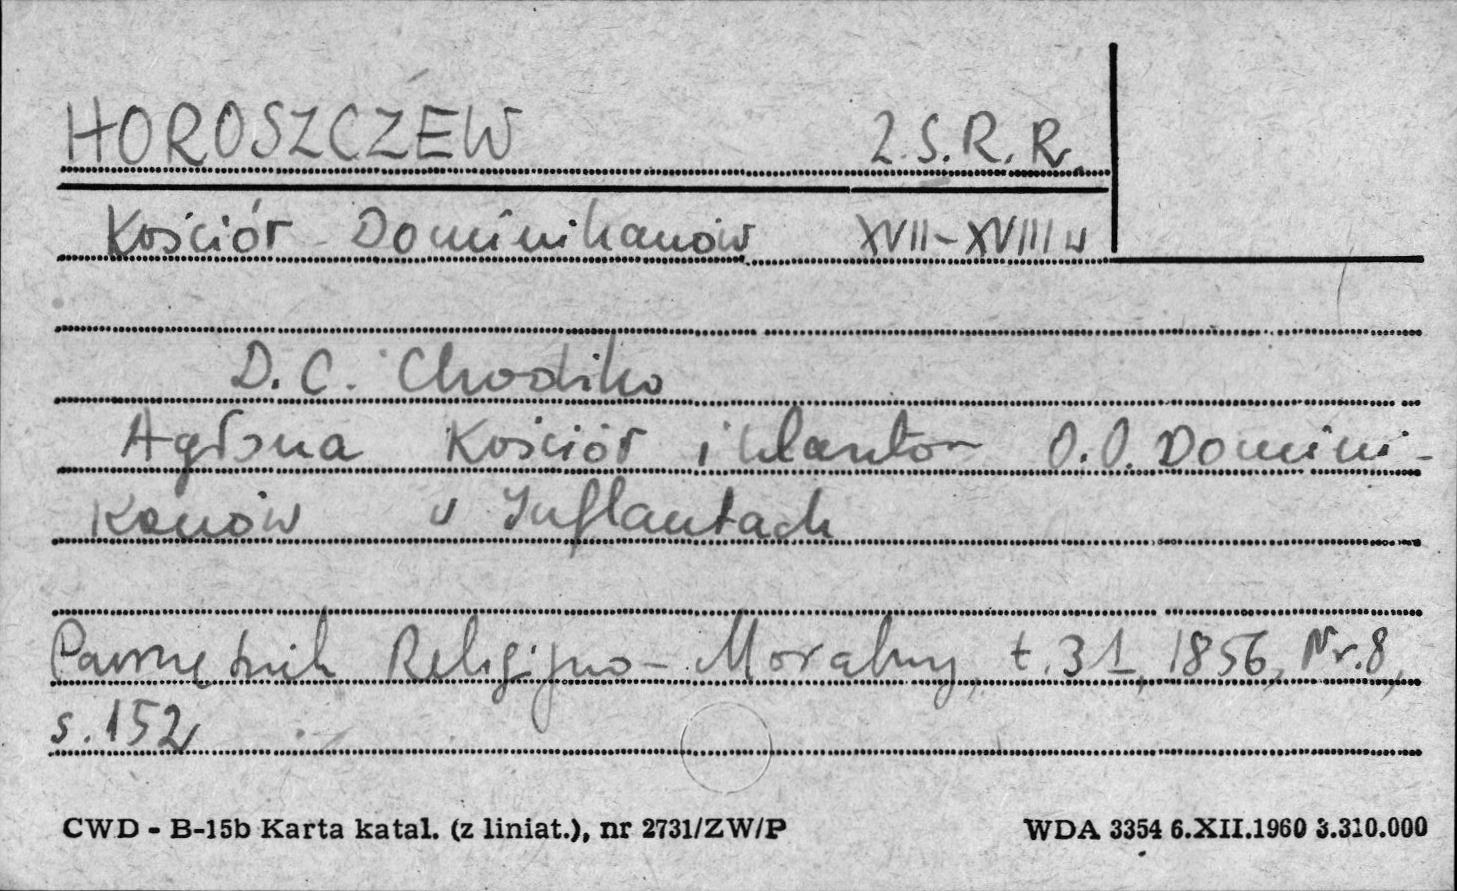 HOROSZCZEW Z.S.R.R.
Kościół Dominikanów XVII-XVIII w
D.C. Chodźko
Agłona Kościół i klasztor O.O. Domini-
kanów w Inflantach
Pamiętnik Religijno-Moralny, t.31, 1856, Nr.8,
s.152
CWD - B-15b Karta katal. (z liniat.), nr 2731/ZW/P WDA 3354 6.XII.1960 3.310.000